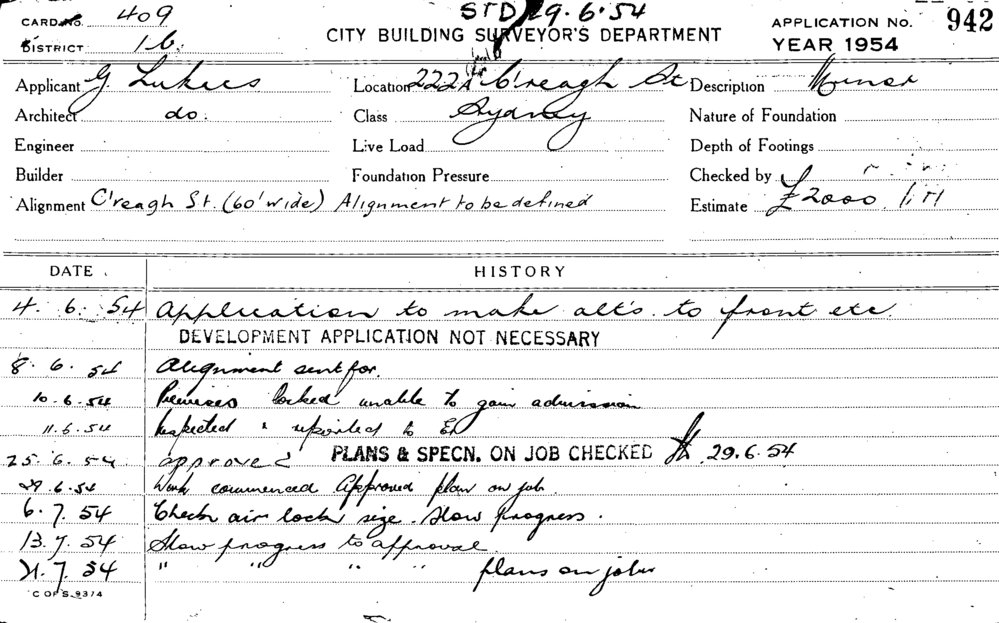 CARD No. 409
STD 29.6.54
APPLICATION No. 942
DISTRICT 16.
CITY BUILDING SURVEYOR'S DEPARTMENT
YEAR 1954
Applicant G. Lukees Location 222A C'reagh St Description Minor
Architect do. Class Sydney Nature of Foundation
Engineer Live Load Depth of Footings
Builder Foundation Pressure Checked by
Alignment C'reagh St. (60' wide) Alignment to be defined Estimate £2000
DATE HISTORY
4. 6. 54 Application to make alt's. to front etc
DEVELOPMENT APPLICATION NOT NECESSARY
8. 6. 54 Alignment sent for.
10.6.54 Premises locked unable to gain admission
11.6.54 Inspected & reported to
25.6.54 approved PLANS & SPECN. ON JOB CHECKED 29.6.54
29.6.54 Work commenced Approved plan on job.
6.7.54 Check air lock size. Slow progress.
13.7.54 Slow progress to approval
21.7.54 " " " " plans on job
C OF S 9374